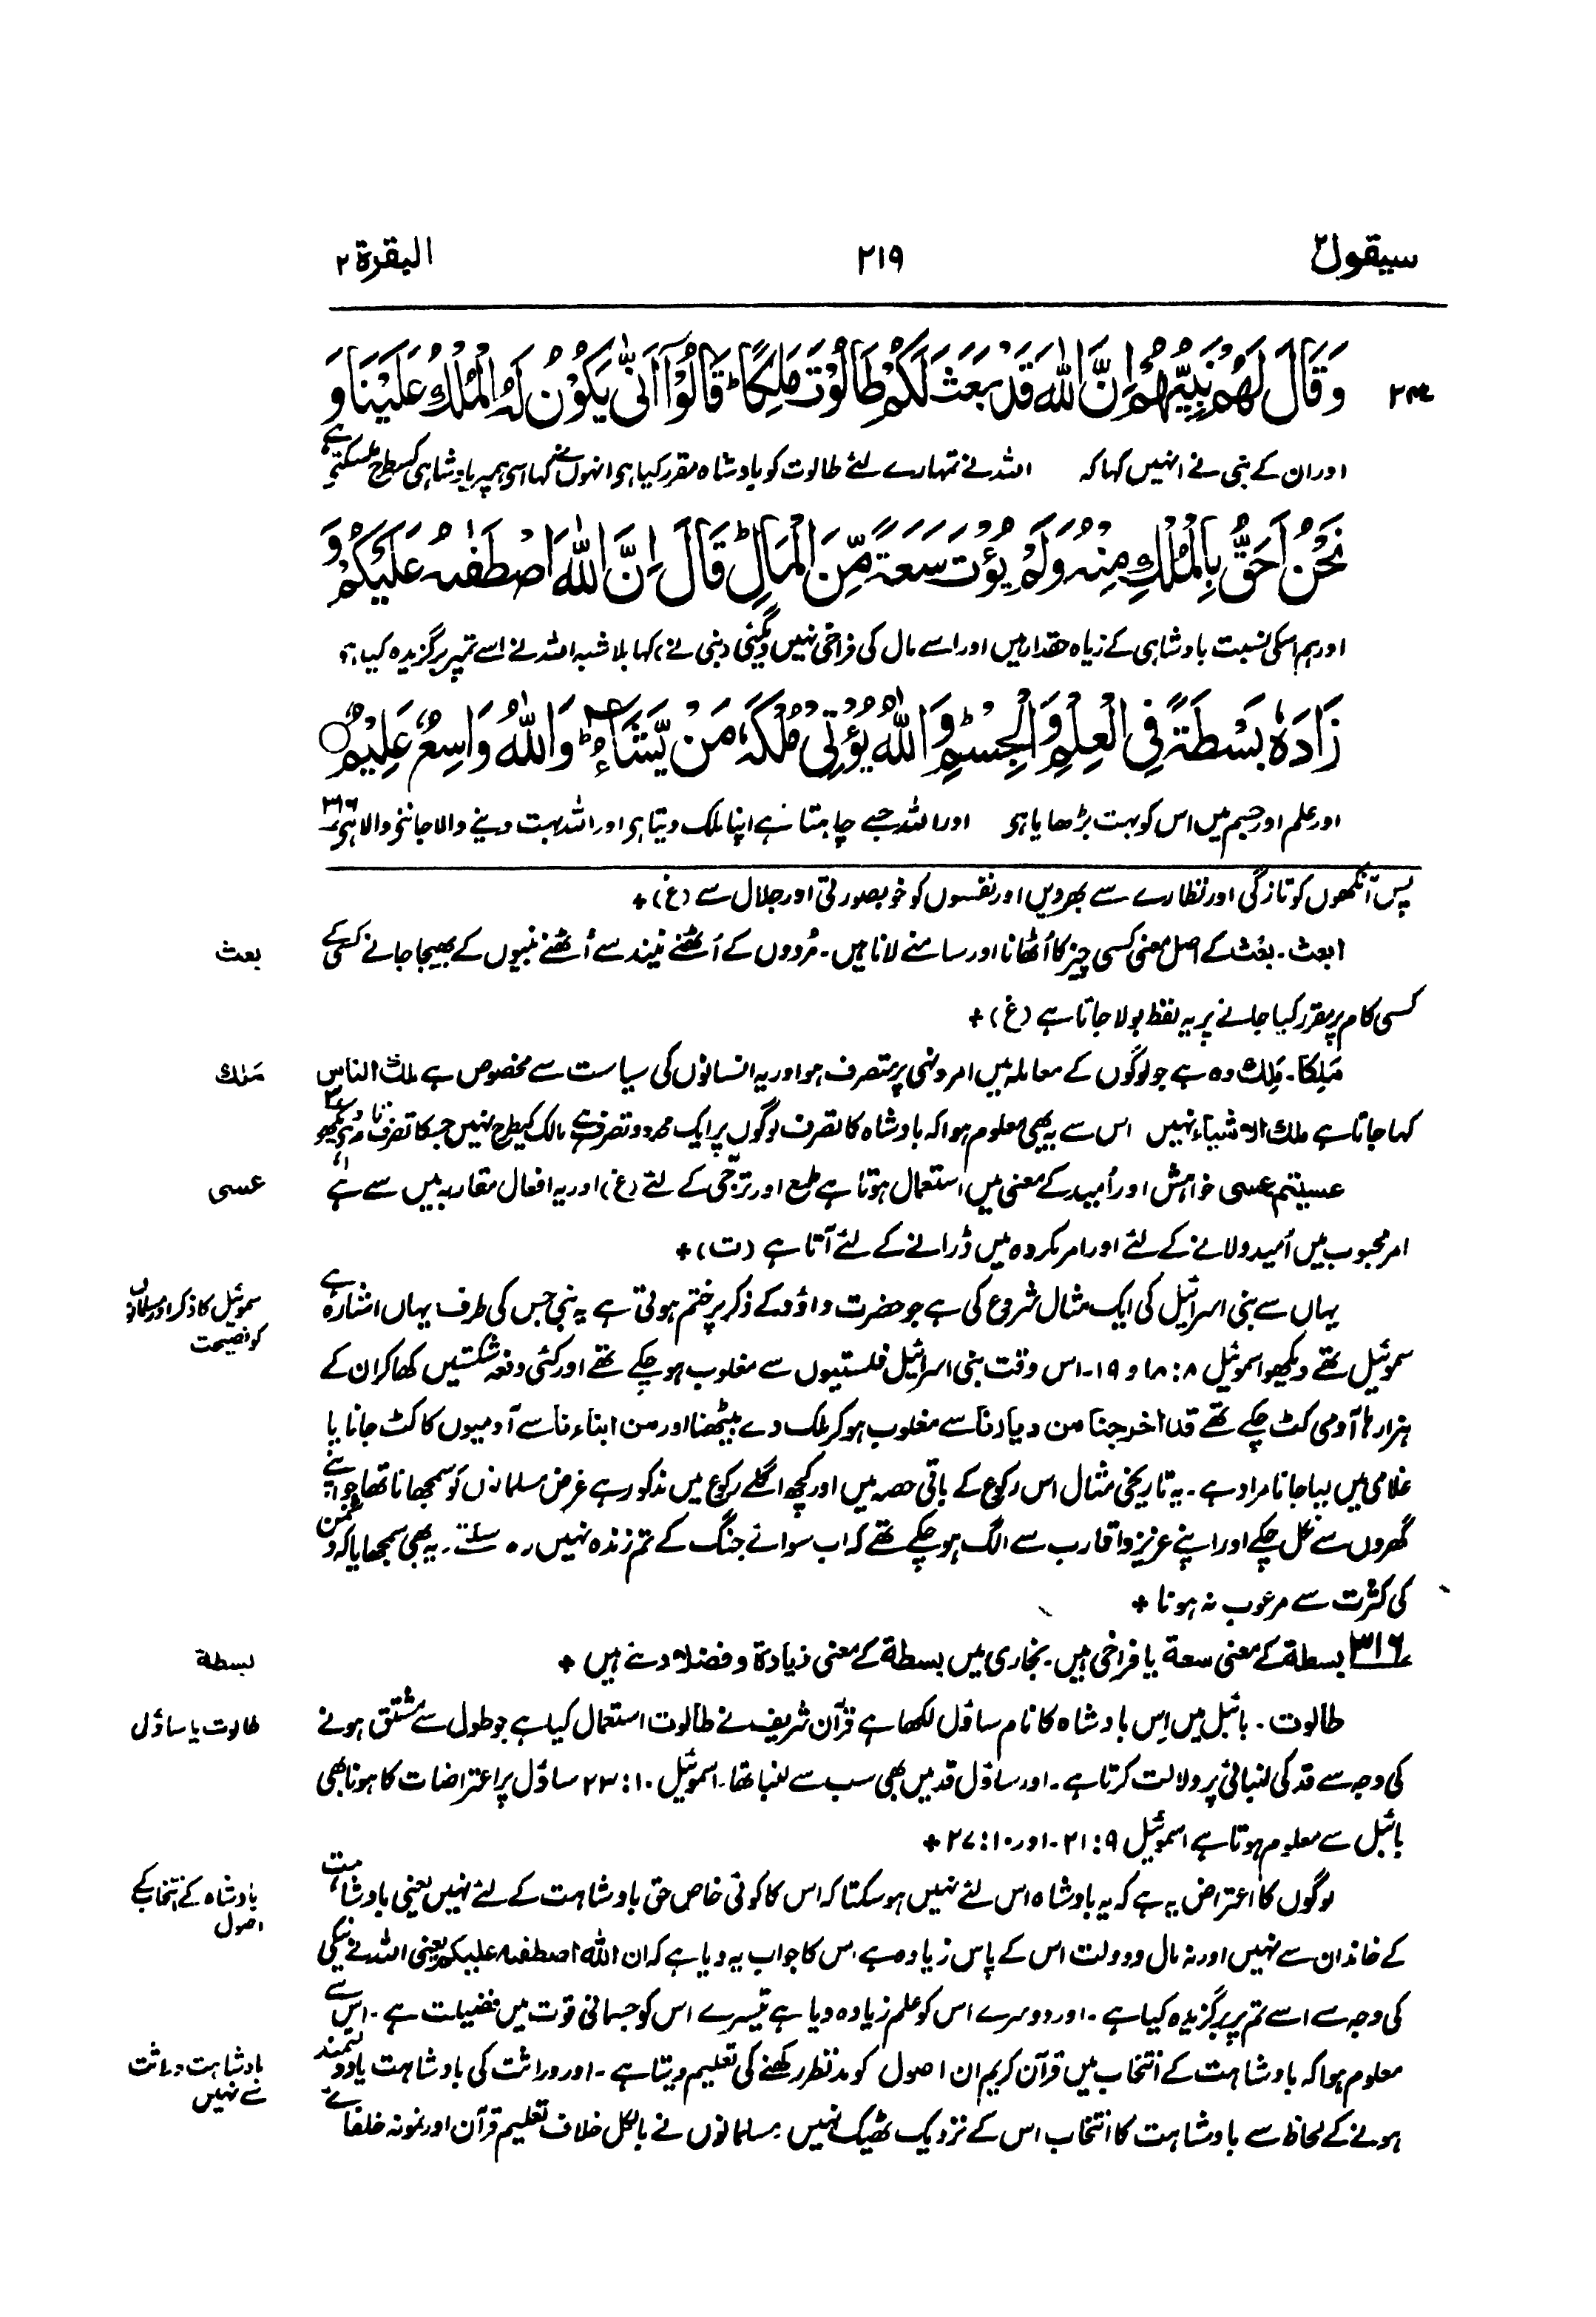 سیقول ۲
۲۱۹
البقرة ۲
۲۴۷
وَقَالَ لَهُمْ نَبِيُّهُمْ اِنَّ اللّٰهَ قَدْ بَعَثَ لَكُمْ طَالُوْتَ مَلِكًا ؕ قَالُوْۤا اَنّٰى يَكُوْنُ لَهُ الْمُلْكُ عَلَيْنَا وَ
اور ان کے نبی نے انہیں کہا کہ اللہ نے تمہارے لئے طالوت کو بادشاہ مقرر کیا ہی انہوں نے کہا اسی ہمپر بادشاہی کسطح ملسکتی ہے
نَحْنُ اَحَقُّ بِالْمُلْكِ مِنْهُ وَلَمْ يُؤْتَ سَعَةً مِّنَ الْمَالِ ؕ قَالَ اِنَّ اللّٰهَ اصْطَفٰىهُ عَلَيْكُمْ وَ
اور ہم اسکی نسبت بادشاہی کے زیادہ حقدار ہیں اور اسے مال کی فراخی نہیں دیگئی (نبی نے) کہا بلاشبہ اللہ نے اسے تمپر برگزیدہ کیا ہی
زَادَهٗ بَسْطَةً فِى الْعِلْمِ وَالْجِسْمِ ؕ وَاللّٰهُ يُؤْتِىْ مُلْكَهٗ مَنْ يَّشَآءُ ؕ وَاللّٰهُ وَاسِعٌ عَلِيْمٌ ○
اور علم اور جسم میں اس کو بہت بڑھایا ہی اور اللہ جسے چاہتا ہے اپنا ملک دیتا ہی اور اللہ بہت دینے والا جاننے والا ہی ۳۱۶
پس آنکھوں کو تازگی اور نظارے سے بھر دیں اور نفسوں کو خوبصورتی اور جلال سے (غ) +
ابعث۔ بعْث کے اصل معنی کسی چیز کا اُٹھانا اور سامنے لانا ہیں۔ مُردوں کے اُٹھنے نیند سے اُٹھنے نبیوں کے بھیجا جانے کسی کے
بعث
کسی کام پر مقرر کیا جانے پر یہ لفظ بولا جاتا ہے (غ) +
مَلِکًا۔ مَلِك وہ ہے جو لوگوں کے معاملہ میں امر و نہی پر متصرف ہو اور یہ انسانوں کی سیاست سے مخصوص ہے ملك الناس
مَلِك
کہا جاتا ہے ملك الاشیاء نہیں اس سے یہ بھی معلوم ہوا کہ بادشاہ کا تصرف لوگوں پر ایک محدود تصرف ہے مالک کیطرح نہیں جسکا تصرف تام ہی دیکھو
عسیتم عسی خواہش اور اُمید کے معنی میں استعمال ہوتا ہے طمع اور ترجّی کے لئے (غ) اور یہ افعال مقاربہ میں سے ہے
عسی
امر محبوب میں اُمید دلانے کے لئے اور امر مکروہ میں ڈرانے کے لئے آتا ہے (ت) +
یہاں سے بنی اسرائیل کی ایک مثال شروع کی ہے جو حضرت داؤد کے ذکر پر ختم ہوتی ہے یہ نبی جس کی طرف یہاں اشارہ ہے
سموئیل کا ذکر اور مسلمانوں
کو نصیحت
سموئیل تھے دیکھو ا سموئیل ۸: ۱۸ و ۱۹۔ اس وقت بنی اسرائیل فلستیوں سے مغلوب ہو چکے تھے اور کئی دفعہ شکستیں کھا کر ان کے
ہزارہا آدمی کٹ چکے تھے قد اخرجنا من دیارنا سے مغلوب ہو کر ملک دے بیٹھنا اور من ابناءنا سے آدمیوں کا کٹ جانا یا
غلامی میں لیا جانا مراد ہے۔ یہ تاریخی مثال اس رکوع کے باقی حصہ میں اور کچھ اگلے رکوع میں مذکور ہے غرض مسلمانوں کو سمجھانا تھا جو اپنے
گھروں سے نکل چکے اور اپنے عزیز و اقارب سے الگ ہو چکے تھے کہ اب سوائے جنگ کے تم زندہ نہیں رہ سکتے۔ یہ بھی سمجھایا کہ دشمن
کی کثرت سے مرعوب نہ ہونا +
۳۱۶ بسطة کے معنی سعة یا فراخی ہیں۔ بخاری میں بسطة کے معنی زیادة و فضلا دئے ہیں +
بسطة
طالوت۔ بائبل میں اِس بادشاہ کا نام ساؤل لکھا ہے قرآن شریف نے طالوت استعمال کیا ہے جو طول سے مشتق ہونے
طالوت یا ساؤل
کی وجہ سے قد کی لنبائی پر دلالت کرتا ہے۔ اور ساؤل قد میں بھی سب سے لنبا تھا۔ ا سموئیل ۱۰: ۲۳ ساؤل پر اعتراضات کا ہونا بھی
بائبل سے معلوم ہوتا ہے ا سموئیل ۹: ۲۱۔ اور ۱۰: ۲۷ +
لوگوں کا اعتراض یہ ہے کہ یہ بادشاہ اس لئے نہیں ہو سکتا کہ اس کا کوئی خاص حق بادشاہت کے لئے نہیں یعنی بادشاہت
بادشاہ کے انتخاب کے
اصول
کے خاندان سے نہیں اور نہ مال و دولت اس کے پاس زیادہ ہے اس کا جواب یہ دیا ہے کہ ان اللہ اصطفٰہ علیکم یعنی اللہ نے نیکی
کی وجہ سے اسے تم پر برگزیدہ کیا ہے۔ اور دوسرے اس کو علم زیادہ دیا ہے تیسرے اس کو جسمانی قوت میں فضیلت ہے۔ اس سے
معلوم ہوا کہ بادشاہت کے انتخاب میں قرآن کریم ان اصول کو مدنظر رکھنے کی تعلیم دیتا ہے۔ اور وراثت کی بادشاہت یا دولتمند
بادشاہت وراثت
سے نہیں
ہونے کے لحاظ سے بادشاہت کا انتخاب اس کے نزدیک ٹھیک نہیں۔ مسلمانوں نے بالکل خلاف تعلیم قرآن اور نمونہ خلفائے